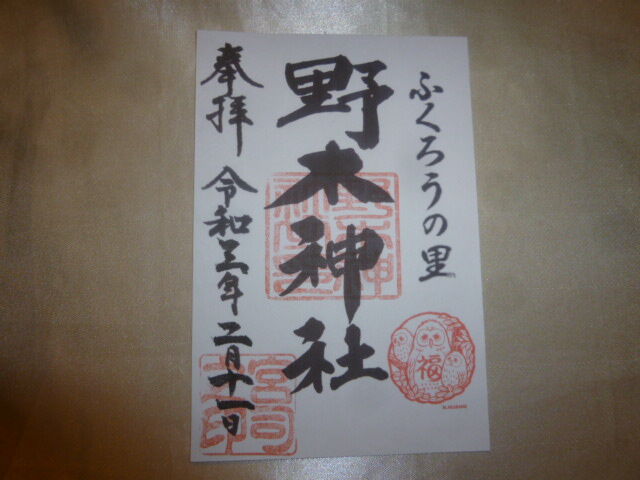 ふくろうの里
野木神社
奉拝
令和三年二月十一日
福
宮司之印